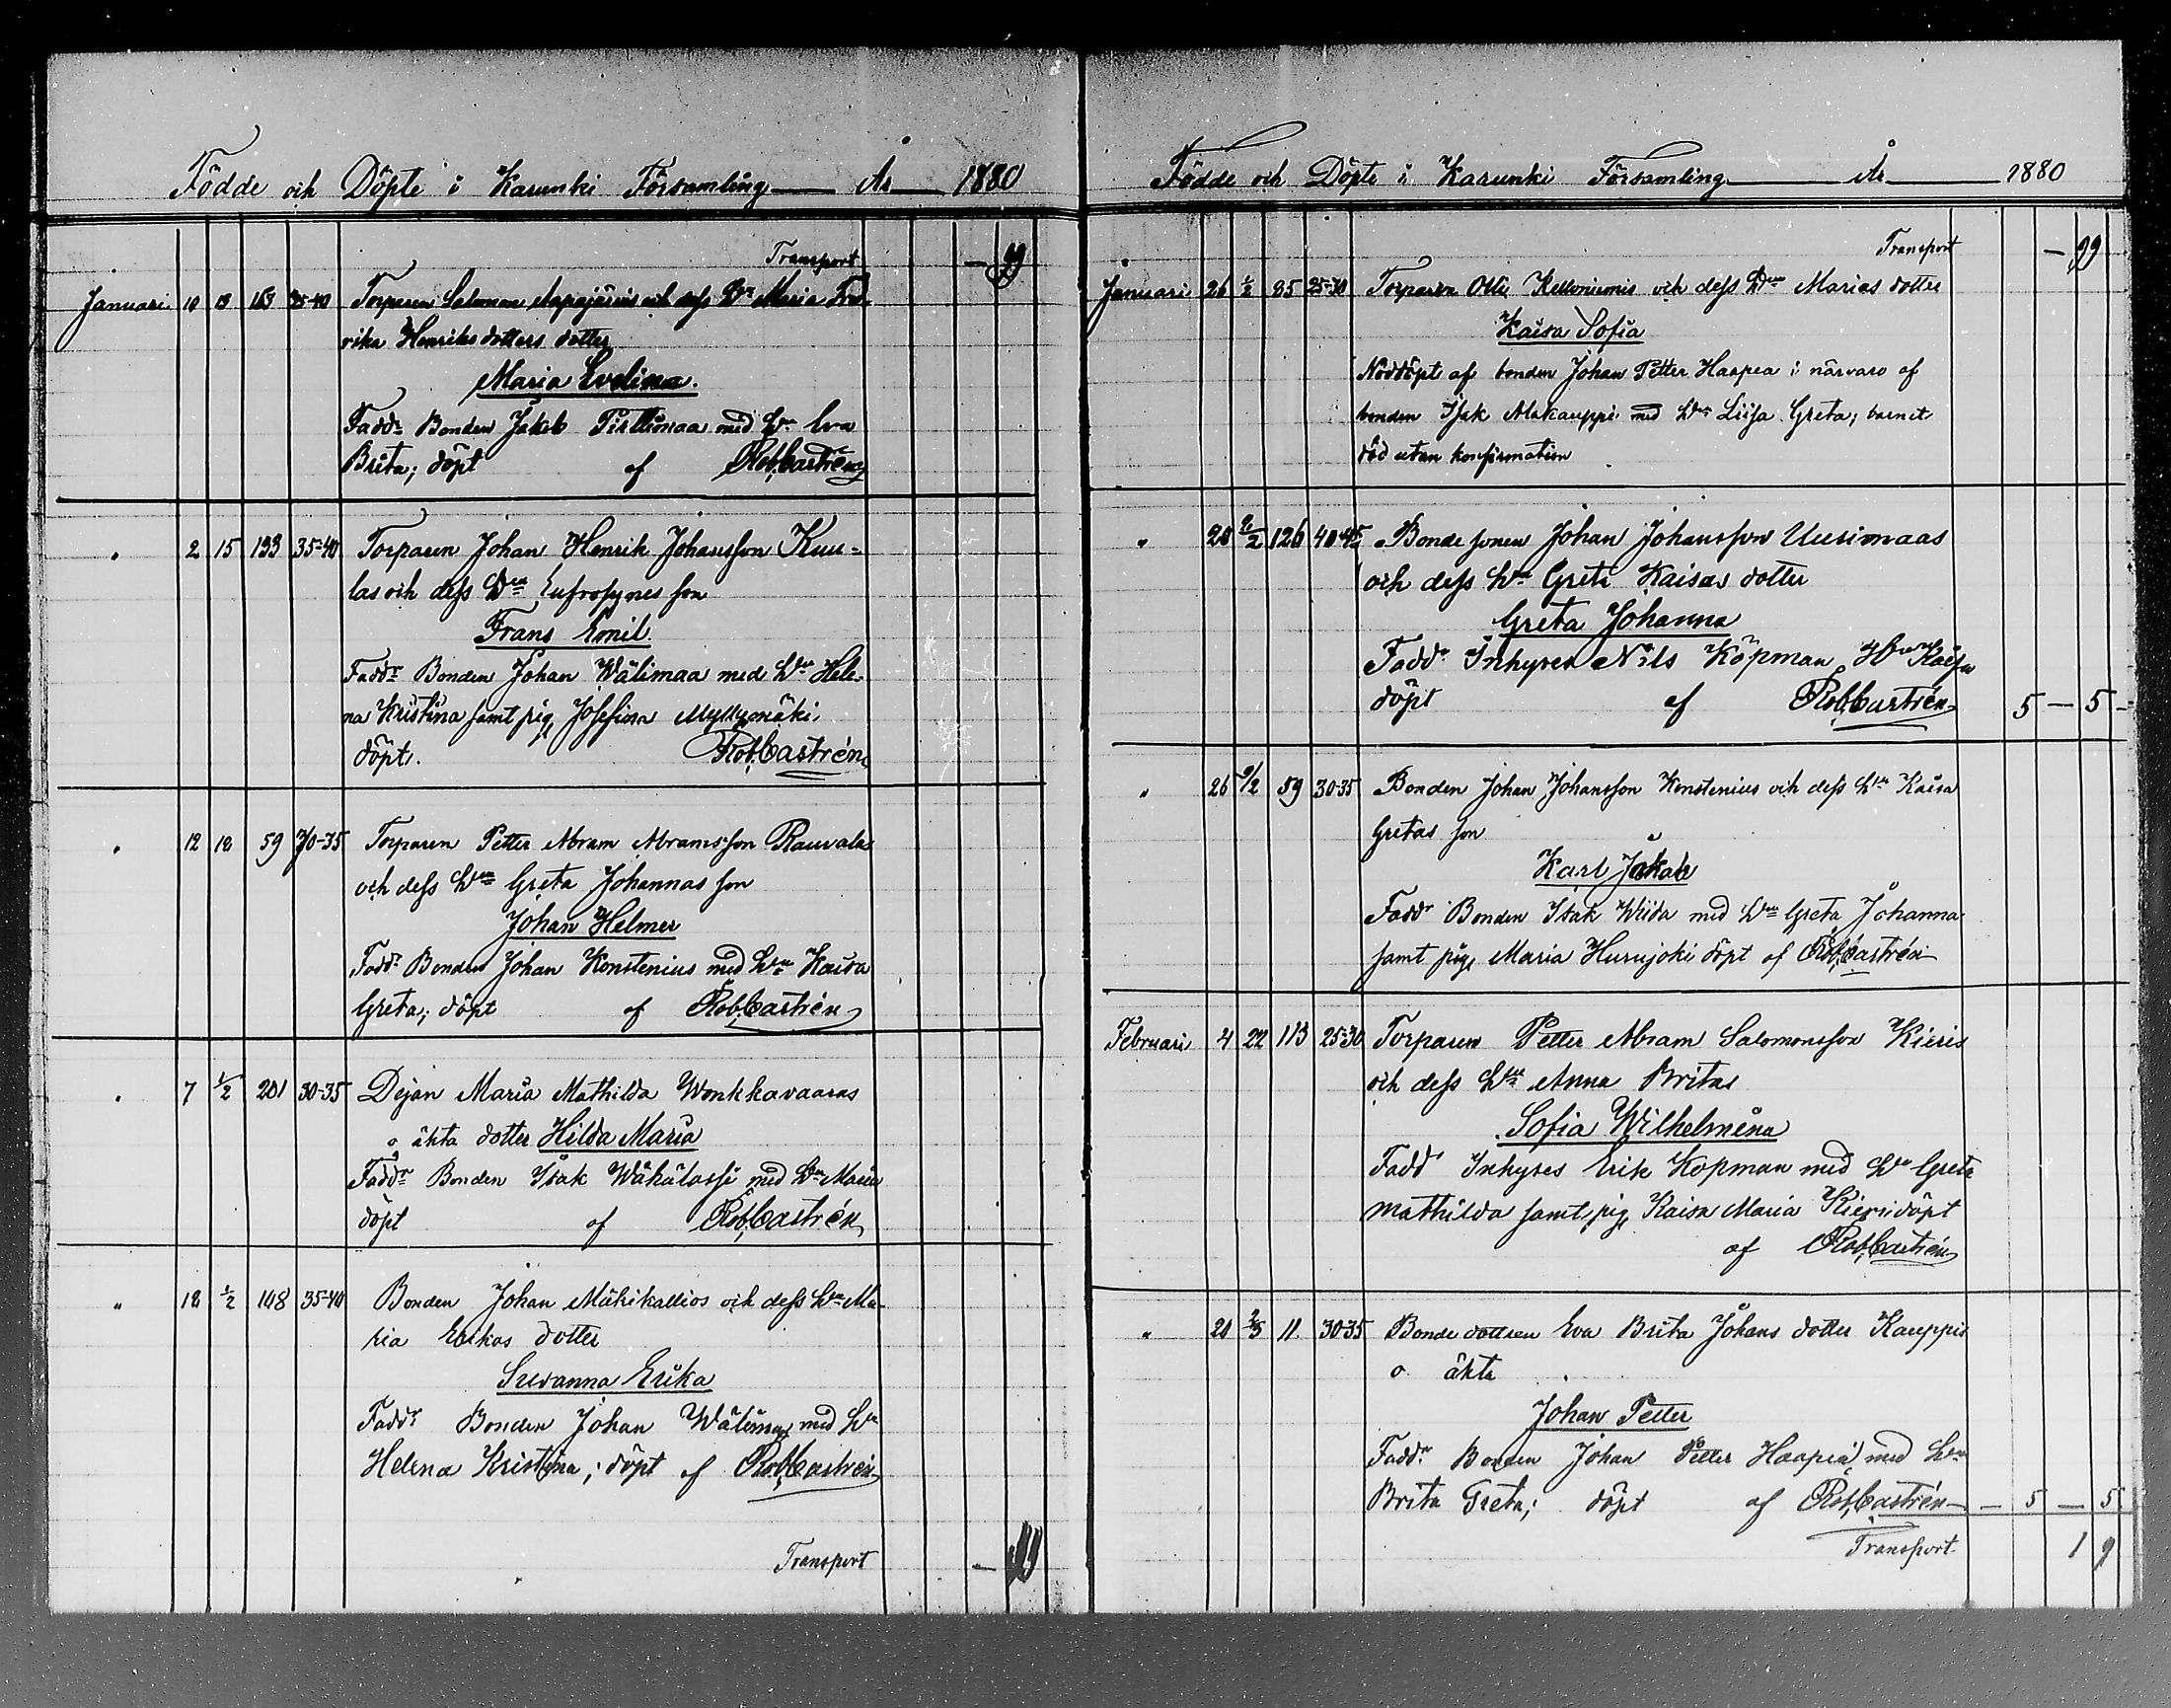 Födde och Döpte i Karunki Församling År 1880
Transport — 99
Januari 10 13 163 35-40 Torparen Salomon Aapajärvis och dess Hu Maria Fred-
rika Henriksdotters dotter
Maria Evelina.
Faddr Bonden Jakob Pirttimaa med Hu Eva
Brita; döpt af Rob. Castrén
" 2 15 133 35-40 Torparen Johan Henrik Johansson Kuu-
las och dess Hu Eufrosynes son
Frans Emil
Faddr Bonden Johan Wälimaa med Hu Hele-
na Kristina samt pig. Josefina Myllymäki
döpt. Rob. Castrén
" 12 18 59 30-35 Torparen Petter Abram Abramsson Rauvalas
och dess Hu Greta Johannas son
Johan Helmer
Faddr Bonden Johan Konstenius med Hu Kaisa
Greta; döpt af Rob. Castrén
" 7 1/2 201 30-35 Dejan Maria Mathilda Wonkkavaaras
o äkta dotter Hilda Maria
Faddr Bonden Isak Wähätassi med Hu Maria
döpt af Rob. Castrén
" 18 1/2 148 35-40 Bonden Johan Mäkikallios och dess Hu Ma-
ria Erikas dotter
Susanna Erika
Faddr Bonden Johan Wälimaa med Hu
Helena Kristina; döpt af Rob. Castrén
Transport — 99
Födde och Döpte i Karunki Församling År 1880
Transport — 99
Januari 26 1/2 85 25-30 Torparen Olli Kelloniemis och dess Hu Marias dotter
Kaisa Sofia
Nöddöpt af bonden Johan Petter Haapea i närvaro af
bonden Isak Alakauppi med Hu Liisa Greta; barnet
död utan konfirmation
" 28 2/2 126 40-45 Bondesonen Johan Johansson Uusimaas
och dess Hu Greta Kaisas dotter
Greta Johanna
Faddr Inhyses Nils Köpman Hu Kaisa
döpt af Rob. Castrén 5 — 5 —
" 26 9/2 59 30-35 Bonden Johan Johansson Konstenius och dess Hu Kaisa
Gretas son
Karl Jakob
Faddr Bonden Isak Wiida med Hu Greta Johanna
samt pig. Maria Hurujoki döpt af Rob. Castrén
Februari 4 22 113 25-30 Torparen Petter Abram Salomonsson Kieris
och dess Hu Anna Britas
Sofia Wilhelmina
Fadd Inhyses Erik Kopman med Hu Greta
Mathilda samt pig. Kaisa Maria Kieri; döpt
af Rob. Castrén
" 20 2/3 11 30-35 Bondedottren Eva Brita Johans dotter Kauppis
o äkta
Johan Petter
Faddr Bonden Johan Petter Haapea med Hu
Brita Greta; döpt af Rob. Castrén — 5 — 5
Transport 1 9